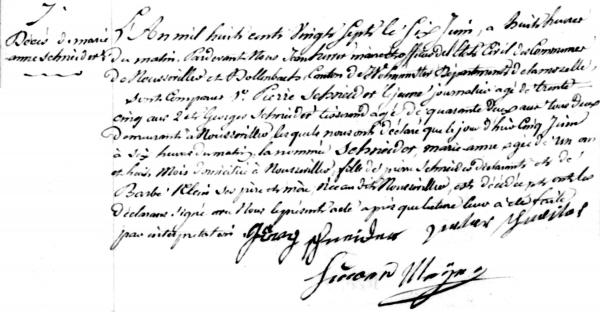 7.
Décès de marie
anne Schneider
L'An mil huit cents Vingt Sept le Six Juin, a huit heures
du matin. Pardevant Nous maire et officier de l'état Civil des Communes
de Nousseviller et Dollenbach, Canton de Volmunster Département de la moselle,
Sont Comparus 1° Pierre Schneider journalier agé de trente
cinq ans 2° et Georges Schneider agé de quarante deux ans tous deux
demeurants à Nousseviller lesquels nous ont déclaré que le jour d'hier Cinq Juin
à Six heures du matin, la nommé Schneider, marie anne agée de un an
et huit Mois domiciliée à Nousseviller, fille de pierre Schneider déclarant et de
Barbe Klein Ses père et mère Née au dit Nousseviller, est décédée, et ont les
déclarans Signé avec Nous le présent acte après que lecture leur a été faite
par interprétation. Georg Schneider Peter Schneider
Mayer